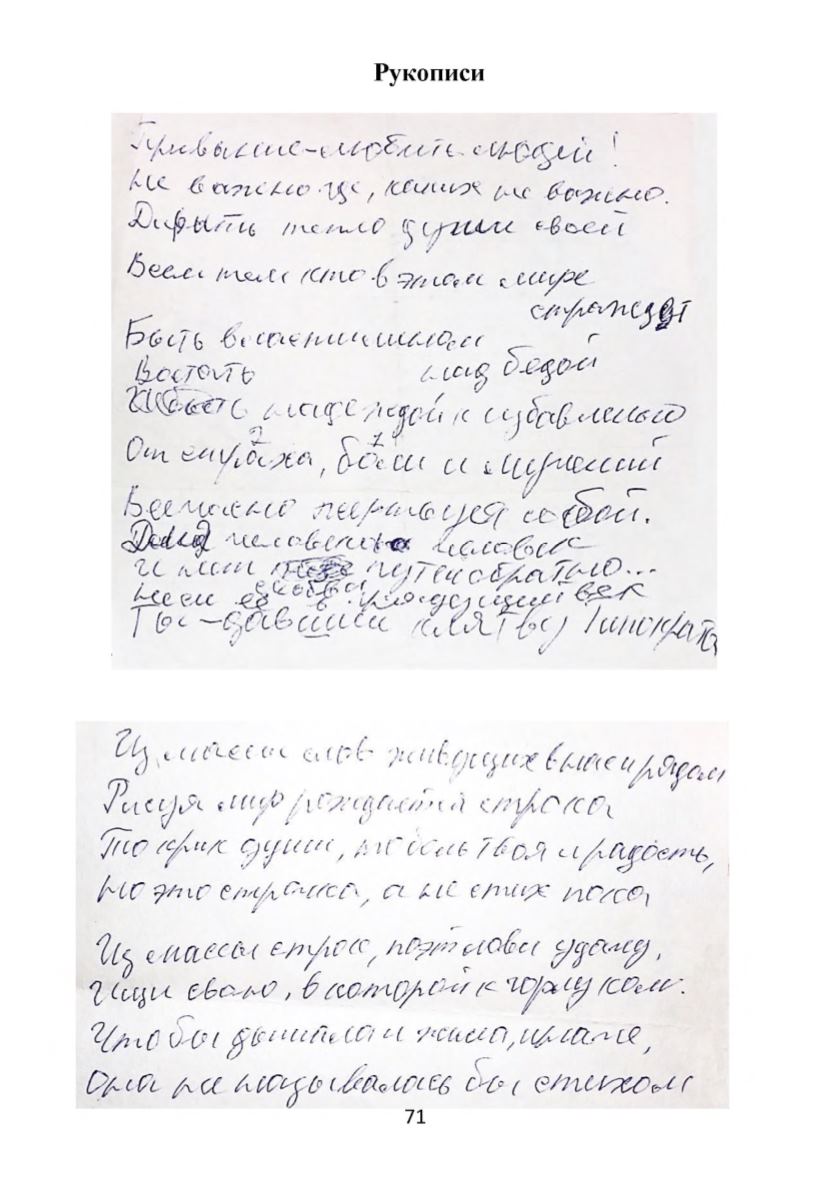 Рукописи
Призвание – любить людей!
Не важно где, каких не важно.
Дарить тепло души своей
Всем тем кто в этом мире
страждет
Быть
Восстать над бедой
надеждой к избавленью
От страха, боли и мучений
Всечасно жертвуя собой.
человеком человек
И нет пути обратно...
Неси её в грядущий век
Ты – давший клятву Гиппократа
Из массы слов живущих в нас и рядом
Рисуя мир рождается строка
То крик души, то боль твоя и радость,
Но это строчка, а не стих пока
Из массы строк, поэт лови удачу,
Ищи свою, в которой к горлу ком.
Чтобы дышала и жила, иначе,
Она не называлась бы стихом
71